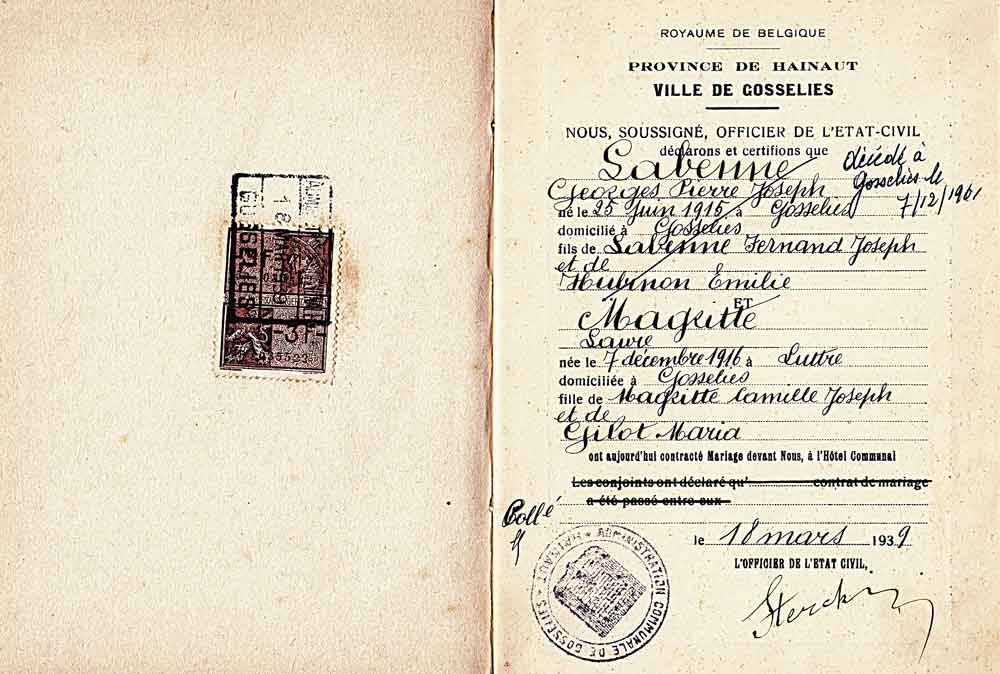 3 Fr
ROYAUME DE BELGIQUE
PROVINCE DE HAINAUT
VILLE DE GOSSELIES
NOUS, SOUSSIGNÉ, OFFICIER DE L'ETAT-CIVIL
déclarons et certifions que
Labenne décédé à
Georges Pierre Joseph Gosselies le
7/12/1961
né le 25 Juin 1915 à Gosselies
domicilié à Gosselies
fils de Labenne Fernand Joseph
et de
Hubinon Emilie
ET
Magritte
Laure
née le 7 décembre 1916 à Luttre
domiciliée à Gosselies
fille de Magritte Camille Joseph
et de
Gilot Maria
ont aujourd'hui contracté Mariage devant Nous, à l'Hôtel Communal
Les conjoints ont déclaré qu' contrat de mariage
a été passé entre eux
Collé
le 18 mars 1939
L'OFFICIER DE L'ETAT CIVIL,
ADMINISTRATION COMMUNALE DE GOSSELIES - HAINAUT